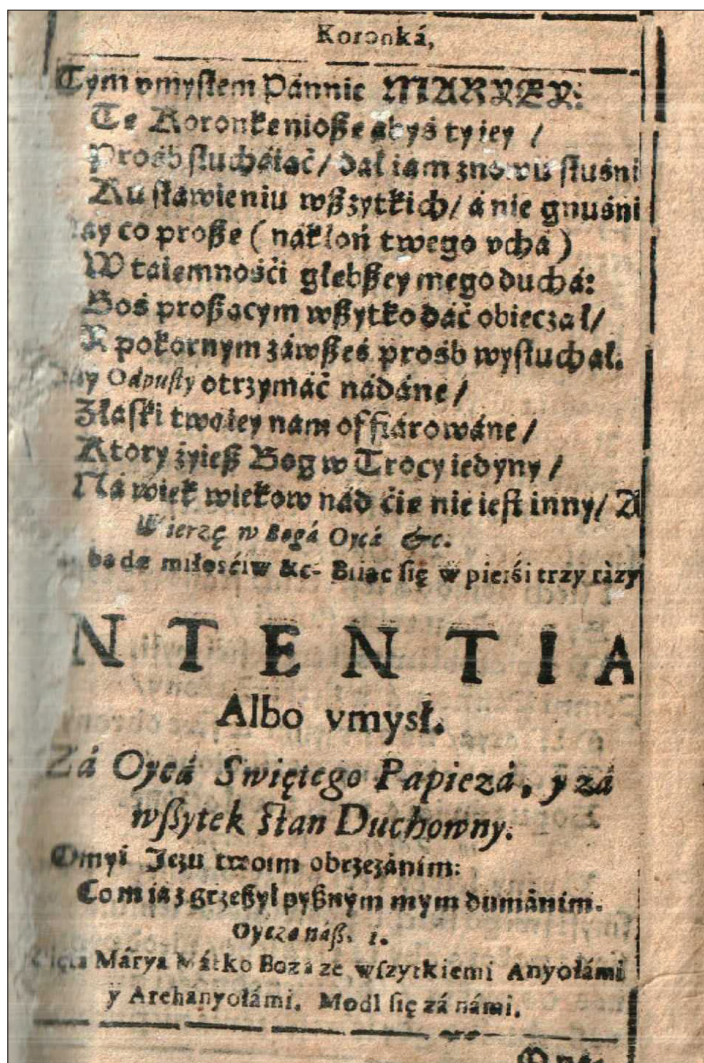 Koronká,
Tym vmysłem Pánnie MARYEY:
Te Koronke nioſſe abyś ty iey /
Prośb ſłucháiąć / dał iam znowu ſłuśni
Ku ſławieniu wſſzytkich / á nie gnuśni
co proſſe ( nákłoń twego vchá )
W táiemnośći głebſſey mego duchá:
Boś proſſącym wſſytko dáć obieczał /
pokornym záwſſeś prośb wyſłuchał.
Odpuſty otrzymáć nádáne /
Złáſki twoiey nam offiárowáne /
Ktory żyieſſ Bog w Trocy iedyny /
Ná wiek wiekow nád ćię nie ieſt inny / A
Wierzę w Bogá Oycá &c.
bądź miłośćiw &c. Biiąc ſię w pierśi trzy rázy
NTENTIA
Albo vmysł.
Zá Oycá Swiętego Papieżá, y zá
wſſytek ſtan Duchowny.
Omyi Jezu twoim obrzezánim:
Com ia zgrzeſſył pyſſnym mym dumánim.
Oycze náſſ. 1.
Márya Mátko Boza ze wſzytkiemi Anyołámi
y Archányołámi. Modl ſię zá námi.